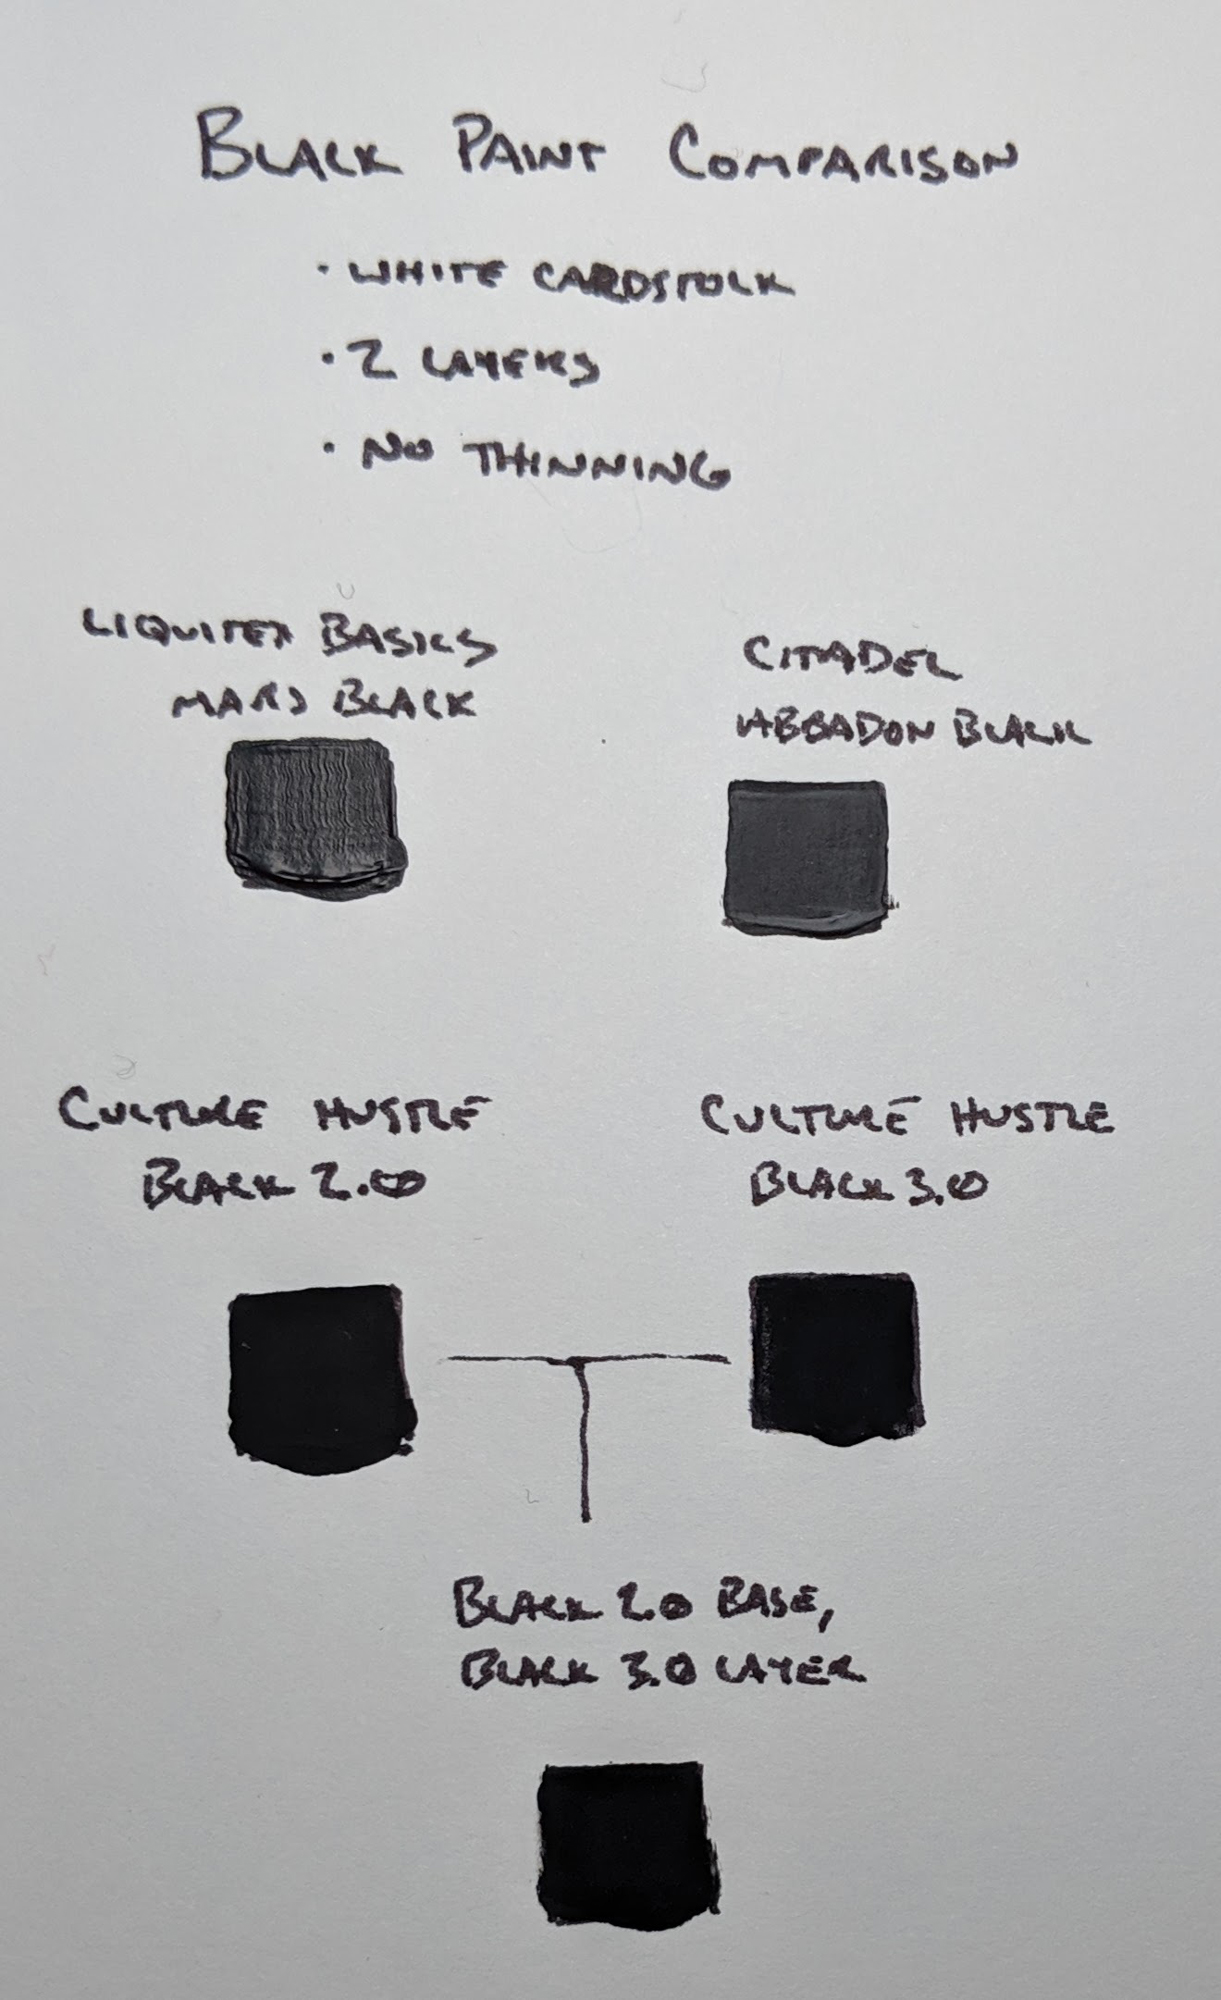 BLACK PAINT COMPARISON
• WHITE CARDSTOCK
• 2 LAYERS
• NO THINNING
LIQUITEX BASICS
MARS BLACK
CITADEL
ABBADON BLACK
CULTURE HUSTLE
BLACK 2.0
CULTURE HUSTLE
BLACK 3.0
BLACK 2.0 BASE,
BLACK 3.0 LAYER